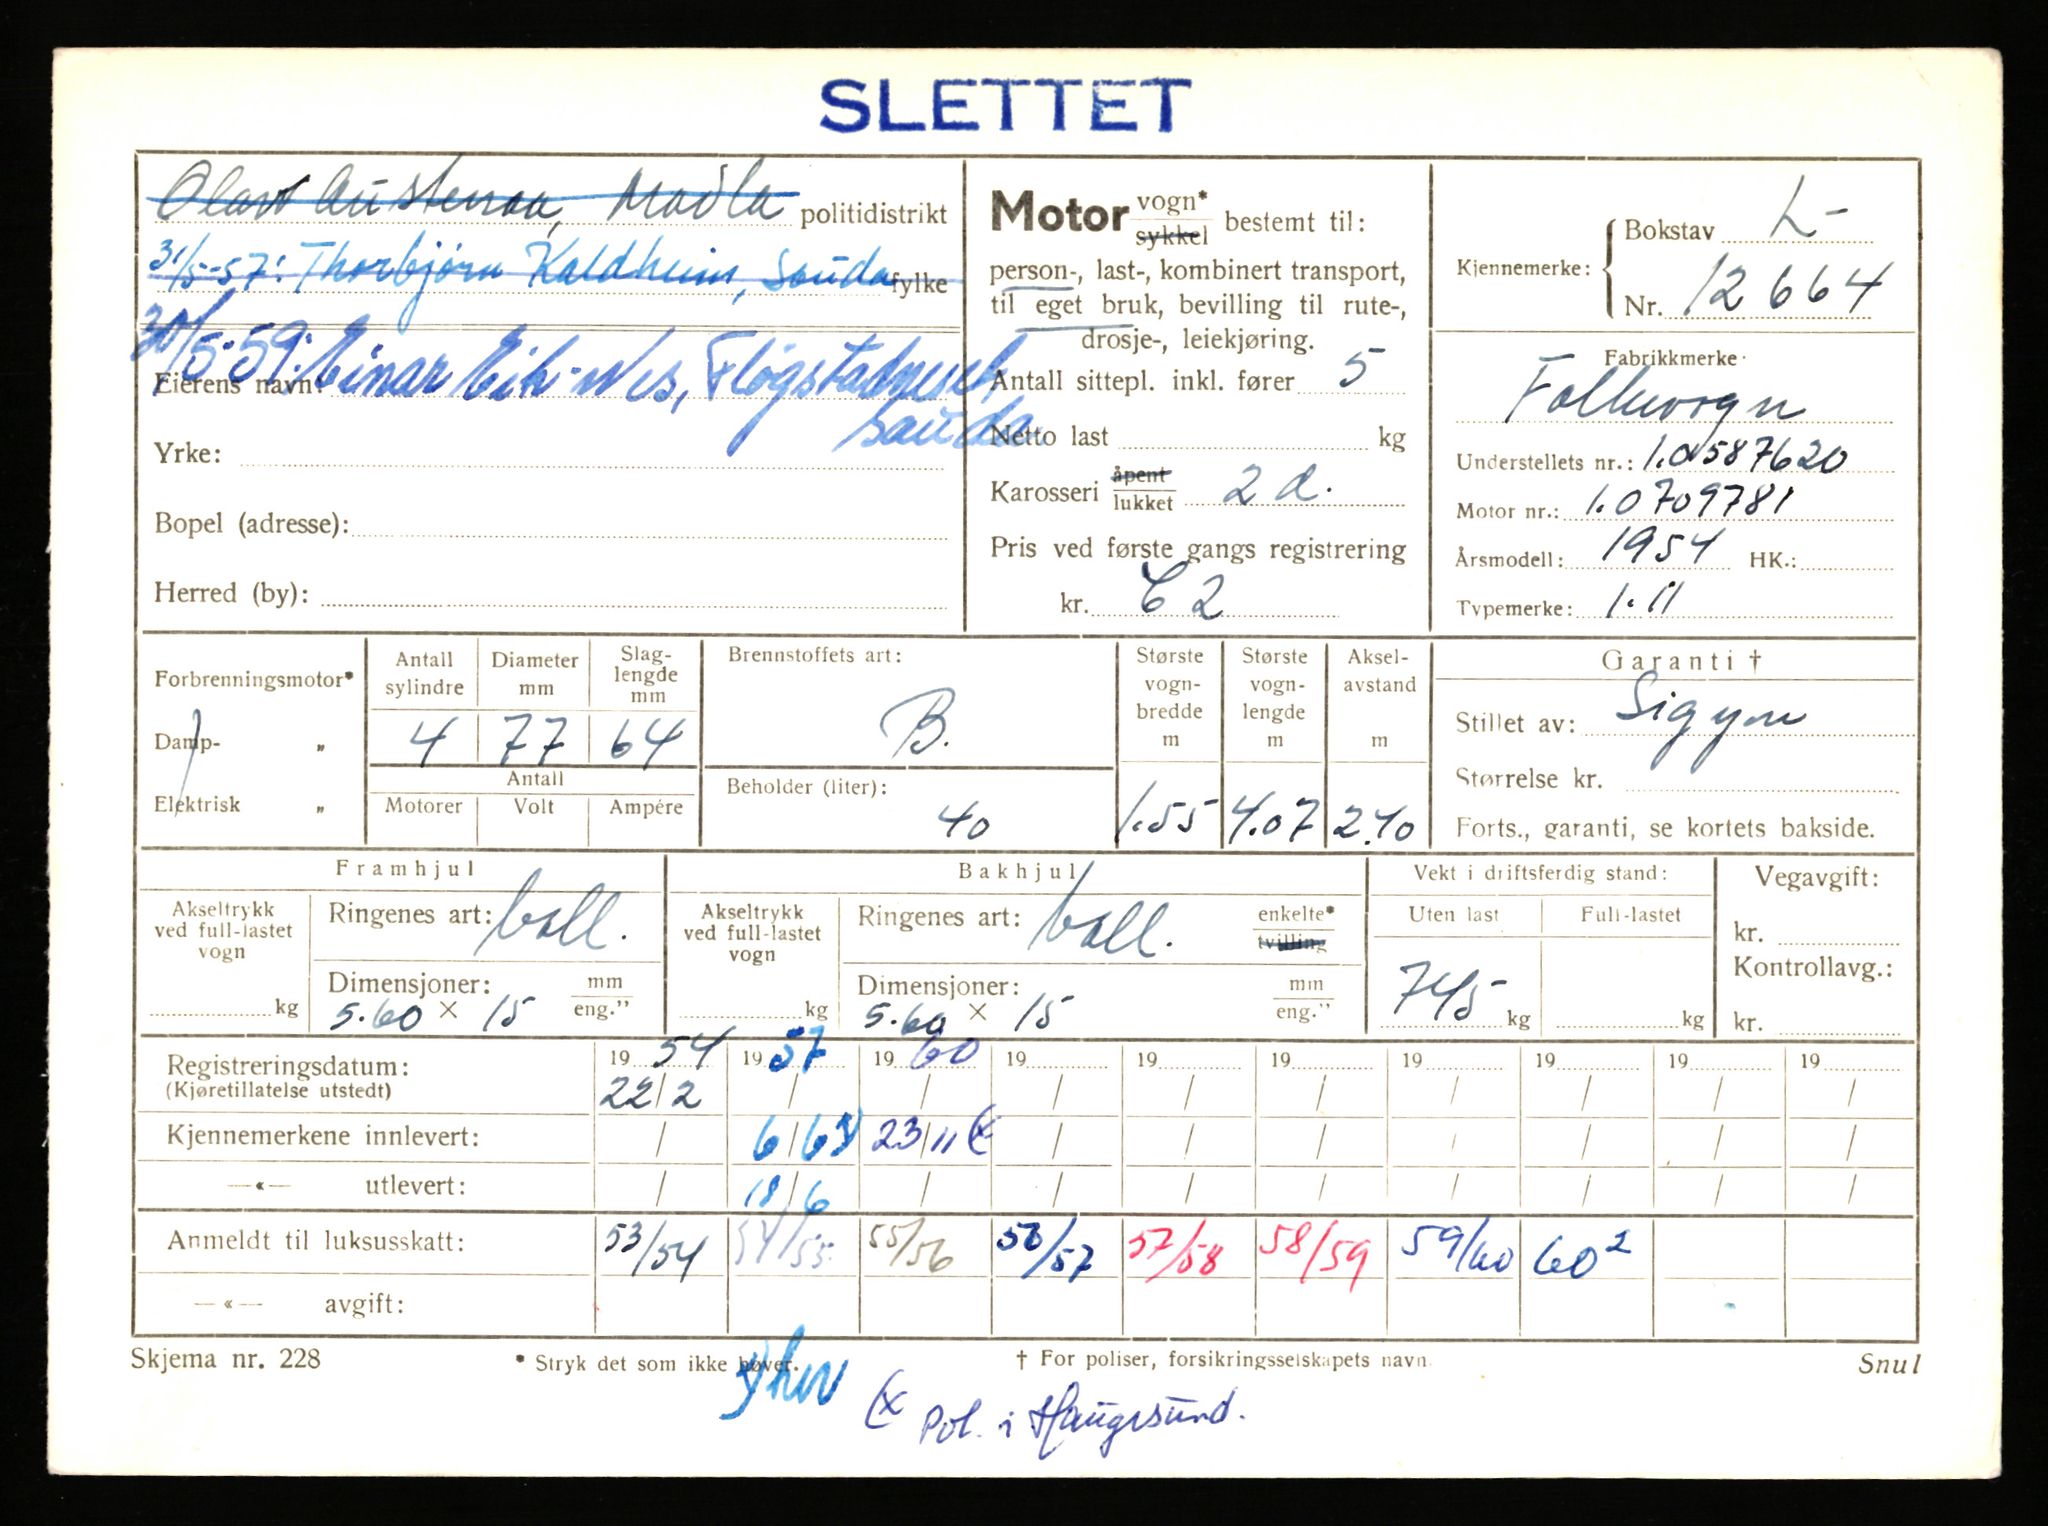 SLETTET
Olav Austenaa, Madla politidistrikt
31/5-57: Thorbjørn Kaldheim, Sauda fylke
30/5-59: Einar Eik-Nes, Fløgstadneset,
Sauda
Eierens navn:
Yrke:
Bopel (adresse):
Herred (by):
Motor vogn* sykkel bestemt til:
person-, last-, kombinert transport,
til eget bruk, bevilling til rute-,
drosje-, leiekjøring.
Antall sittepl. inkl. fører 5
Netto last kg
Karosseri åpent lukket 2 d.
Pris ved første gangs registrering
kr. C 2
Kjennemerke: Bokstav L-
Nr. 12664
Fabrikkmerke
Folkevogn
Understellets nr.: 1.0587620
Motor nr.: 1.0709781
Årsmodell: 1954 HK.:
Typemerke: 1.11
Forbrenningsmotor*
Damp- „
Elektrisk „
Antall sylindre Diameter mm Slaglengde mm
4 77 64
Antall
Motorer Volt Ampére
Brennstoffets art:
B.
Beholder (liter):
40
Største vogn-bredde m Største vogn-lengde m Aksel-avstand m
1.55 4.07 2.40
Garanti †
Stillet av: Sigyn
Størrelse kr.
Forts., garanti, se kortets bakside.
Framhjul
Akseltrykk ved full-lastet vogn
kg
Ringenes art: ball.
Dimensjoner: mm
5.60 × 15 eng."
Bakhjul
Akseltrykk ved full-lastet vogn
kg
Ringenes art: ball. enkelte* tvilling
Dimensjoner: mm
5.60 × 15 eng."
Vekt i driftsferdig stand:
Uten last Full-lastet
745 kg kg
Vegavgift:
kr.
Kontrollavg.:
kr.
Registreringsdatum: 19 54 19 57 19 60 19 19 19 19 19 19 19
(Kjøretillatelse utstedt) 22/2 / / / / / / / / /
Kjennemerkene innlevert: / 6/6 23/11 (x / / / / / / /
—«— utlevert: / 18/6 / / / / / / / /
Anmeldt til luksusskatt: 53/54 54/55 55/56 56/57 57/58 58/59 59/60 60²
—«— avgift:
Skjema nr. 228 * Stryk det som ikke høver. † For poliser, forsikringsselskapets navn. Snul
(x Pol. i Haugesund.